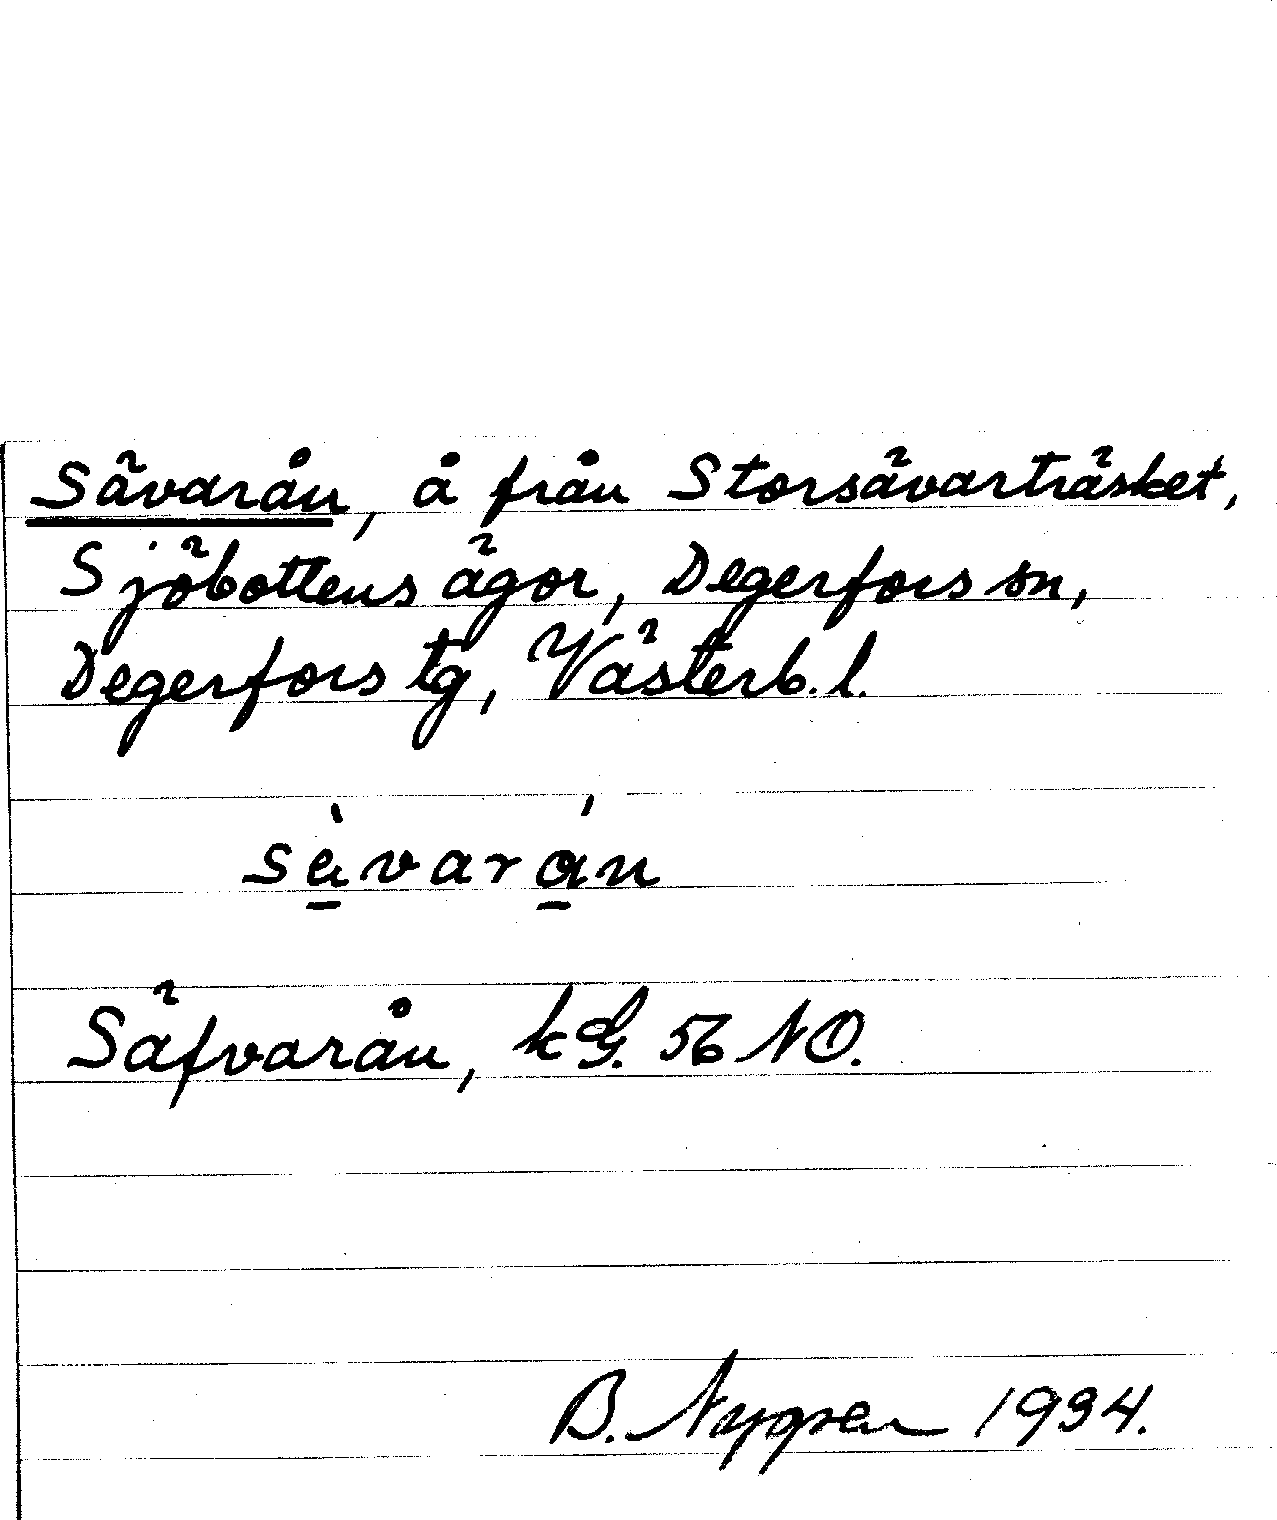 Sävarån, å från Storsävarträsket,
Sjöbottens ägor, Degerfors sn,
Degerfors tg, Västerb. l.
sè̲vará̲n
Säfvarån, kG. 56 NO.
B. Nygren 1934.